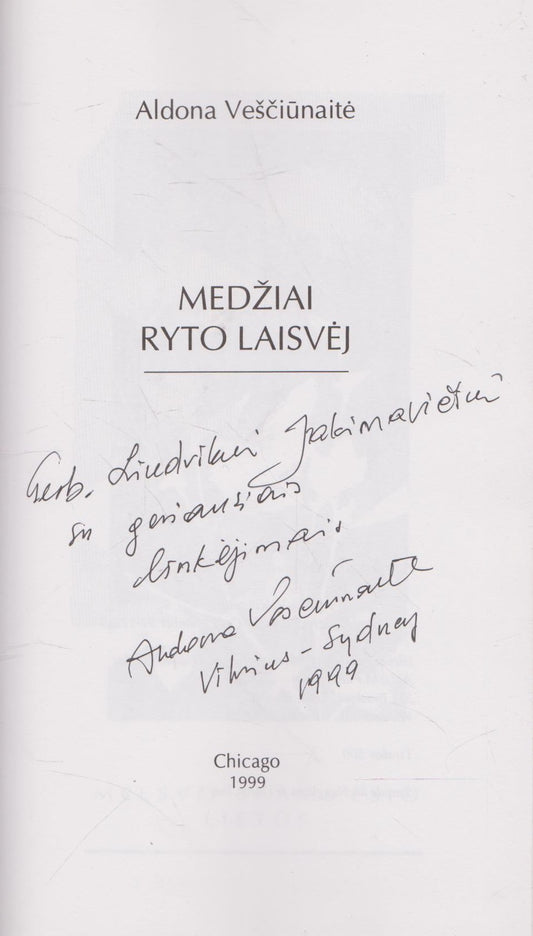 Aldona Veščiūnaitė
MEDŽIAI
RYTO LAISVĖJ
Gerb. Liudvikui Jakimavičiui
su geriausiais
linkėjimais
Aldona Veščiūnaitė
Vilnius – Sydney
1999
Chicago
1999